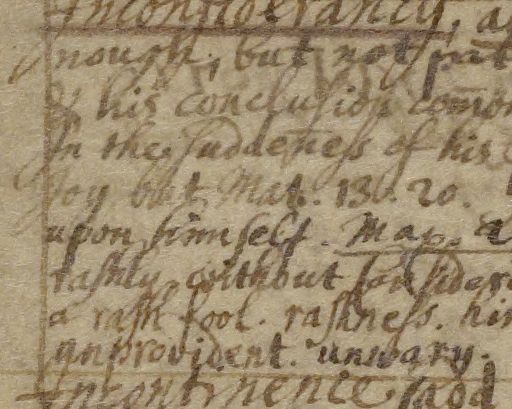 Inconsiderancy, as
nough, but not put
& his conclusion com̄on
In the suddeness of his
Joy but Mat. 13. 20.
upon himself. Map. a
rashly, without consider
a rash fool. rashness. hin
unprovident. unwary.
Incontinence